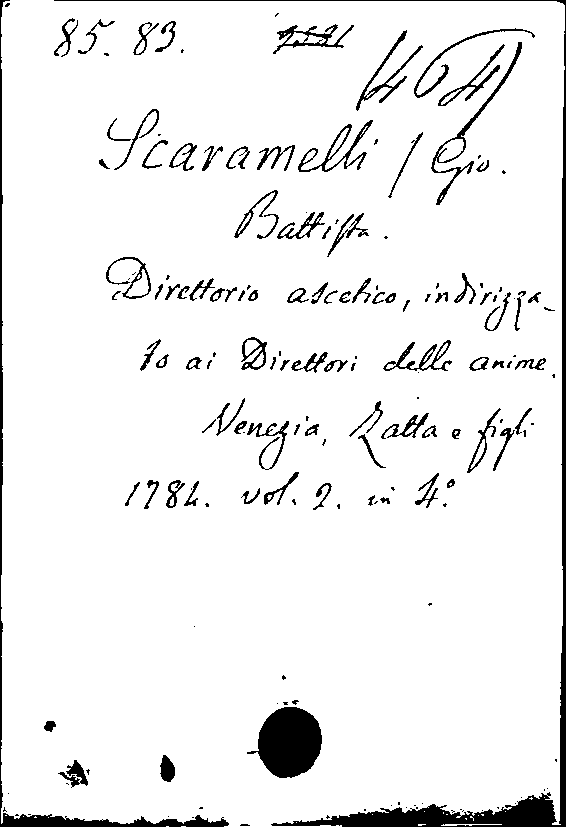 85. 83.
(404)
Scaramelli / Gio.
Battista.
Direttorio ascetico, indirizza-
to ai Direttori delle anime.
Venezia, Zatta e figli
1784. vol. 2. in 4°.